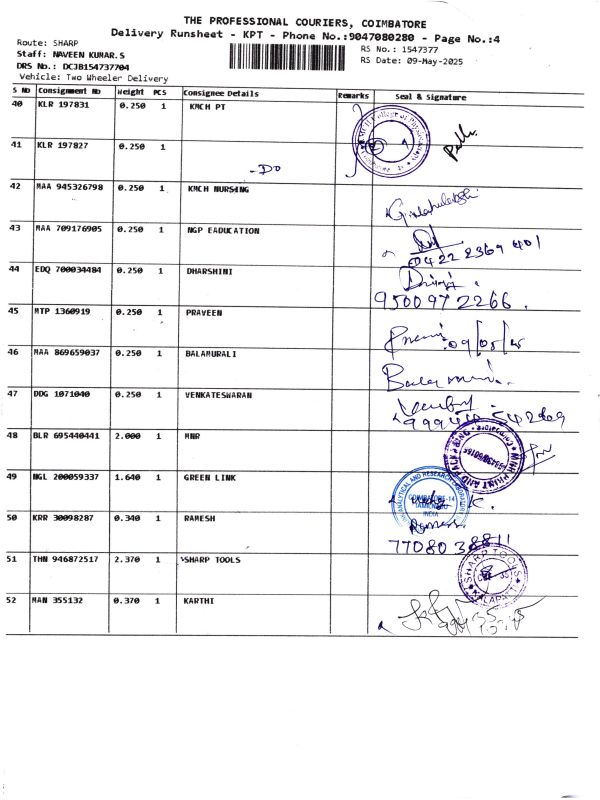 THE PROFESSIONAL COURIERS, COIMBATORE
Delivery Runsheet - KPT - Phone No.:9047080280 - Page No.:4
Route: SHARP
Staff: NAVEEN KUMAR.S
DRS No.: DCJB154737704
Vehicle: Two Wheeler Delivery
RS No.: 1547377
RS Date: 09-May-2025
S No Consignment No Weight PCS Consignee Details Remarks Seal & Signature
40 KLR 197831 0.250 1 KMCH PT
41 KLR 197827 0.250 1
-Do
42 MAA 945326798 0.250 1 KMCH NURSING
43 MAA 709176905 0.250 1 NGP EADUCATION
0422 2369 401
44 EDQ 700034484 0.250 1 DHARSHINI
9500972266.
45 MTP 1360919 0.250 1 PRAVEEN
09/05/25
46 MAA 869659037 0.250 1 BALAMURALI
47 DDG 1071040 0.250 1 VENKATESWARAN
48 BLR 695440441 2.000 1 MNR
49 NGL 200059337 1.640 1 GREEN LINK
COIMBATORE-14
TAMILNADU
INDIA
50 KRR 30098287 0.340 1 RAMESH
7708038811
51 THN 946872517 2.370 1 SHARP TOOLS
SHARP TOOLS
KALAPATTI
52 MAN 355132 0.370 1 KARTHI